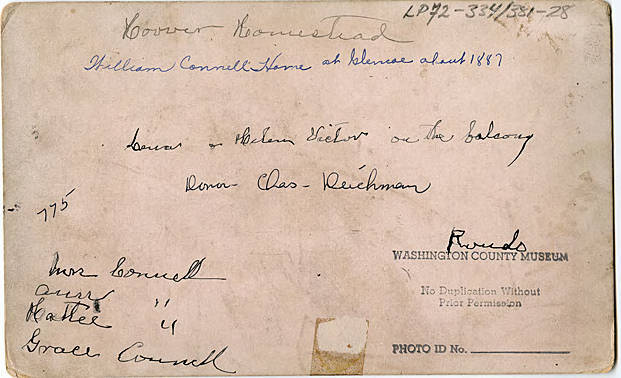 LP72-334/381-28
Hoover Homestead
William Connell Home at Glencoe about 1887
& Helen Victor on the balcony
Donor - Chas - Deichman
775
Roads
WASHINGTON COUNTY MUSEUM
No Duplication Without
Prior Permission
PHOTO ID No.
Mrs Connell
"
Hattie "
Grace Connell